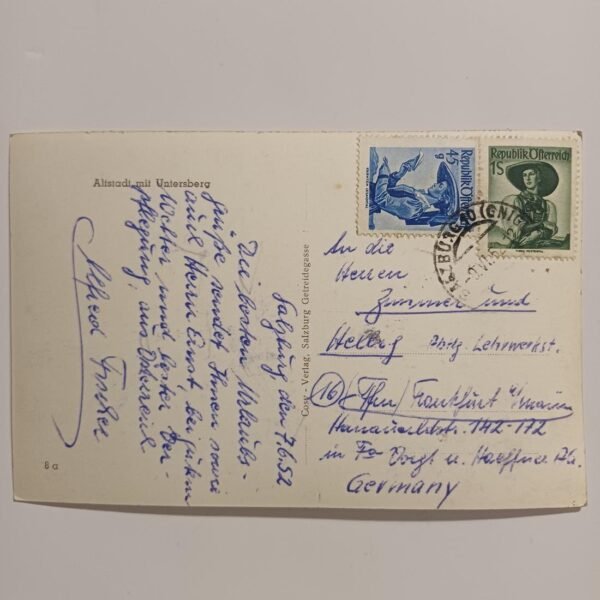 Altstadt mit Untersberg
Salzburg den 7.6.52
Die besten Urlaubs-
grüße sendet Ihnen sowie
auch Herrn Ernst bei gutem
Wetter und bester Ver-
pflegung aus Österreich
Alfred Fischer
8 a
Cosy - Verlag, Salzburg Getreidegasse
45
g
Republik Österreich
1S
Republik Österreich
SALZBURG 10 (GNIGL)
An die
Herren
Zimmer und
Hellwig Abtlg. Lehrwerkst.
(16) Ffm/Frankfurt a/Main
Hanauerldstr. 142-172
in Fa Voigt u. Haeffner AG.
Germany